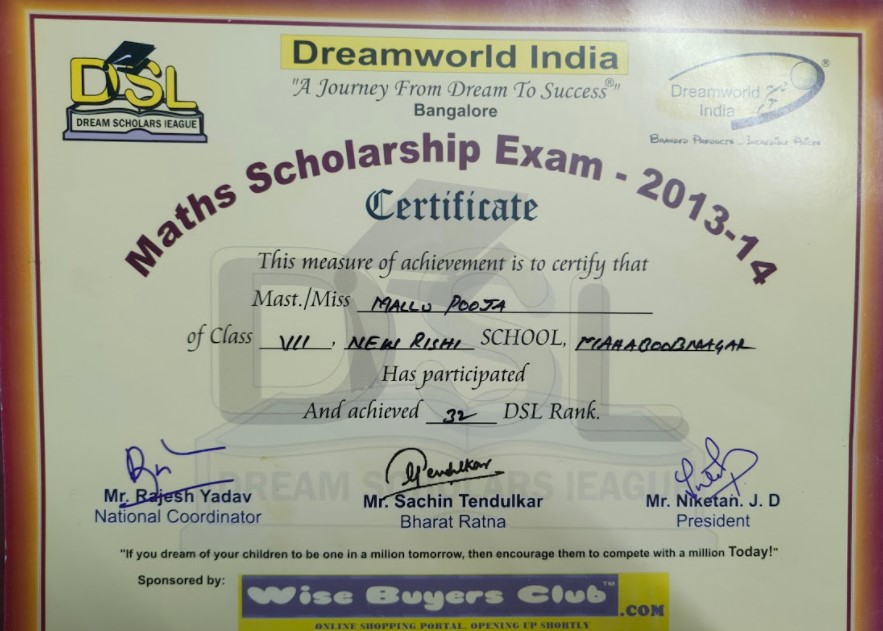 DSL
DREAM SCHOLARS lEAGUE
Dreamworld India
"A Journey From Dream To Success®"
Bangalore
Dreamworld
India
®
BRANDED PRODUCTS - INCREDIBLE PRICES
Maths Scholarship Exam - 2013-14
Certificate
This measure of achievement is to certify that
Mast./Miss MALLU POOJA
of Class VII, NEW RISHI SCHOOL, MAHABOOBNAGAR
Has participated
And achieved 32 DSL Rank.
DSL
DREAM SCHOLARS lEAGUE
Tendulkar
Mr. Rajesh Yadav
National Coordinator
Mr. Sachin Tendulkar
Bharat Ratna
Mr. Niketan. J. D
President
"If you dream of your children to be one in a milion tomorrow, then encourage them to compete with a million Today!"
Sponsored by:
Wise Buyers Club™.COM
ONLINE SHOPPING PORTAL, OPENING UP SHORTLY